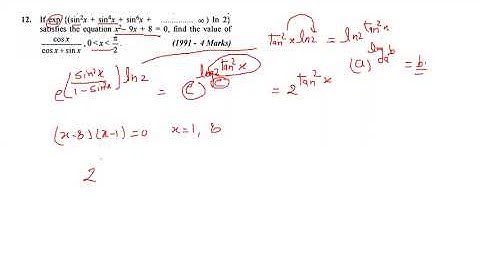 12. If exp {(sin²x + sin⁴x + sin⁶x + .............. ∞) ln 2}
satisfies the equation x² – 9x + 8 = 0, find the value of
cos x / cos x + sin x , 0 < x < π/2 . (1991 - 4 Marks)
tan²x ln2 = ln2^tan²x
(a)^log_a b = b
e^(sin²x / 1 - sin²x) ln2 = e^ln2^tan²x = 2^tan²x
(x-8)(x-1)=0 x=1, 8
2